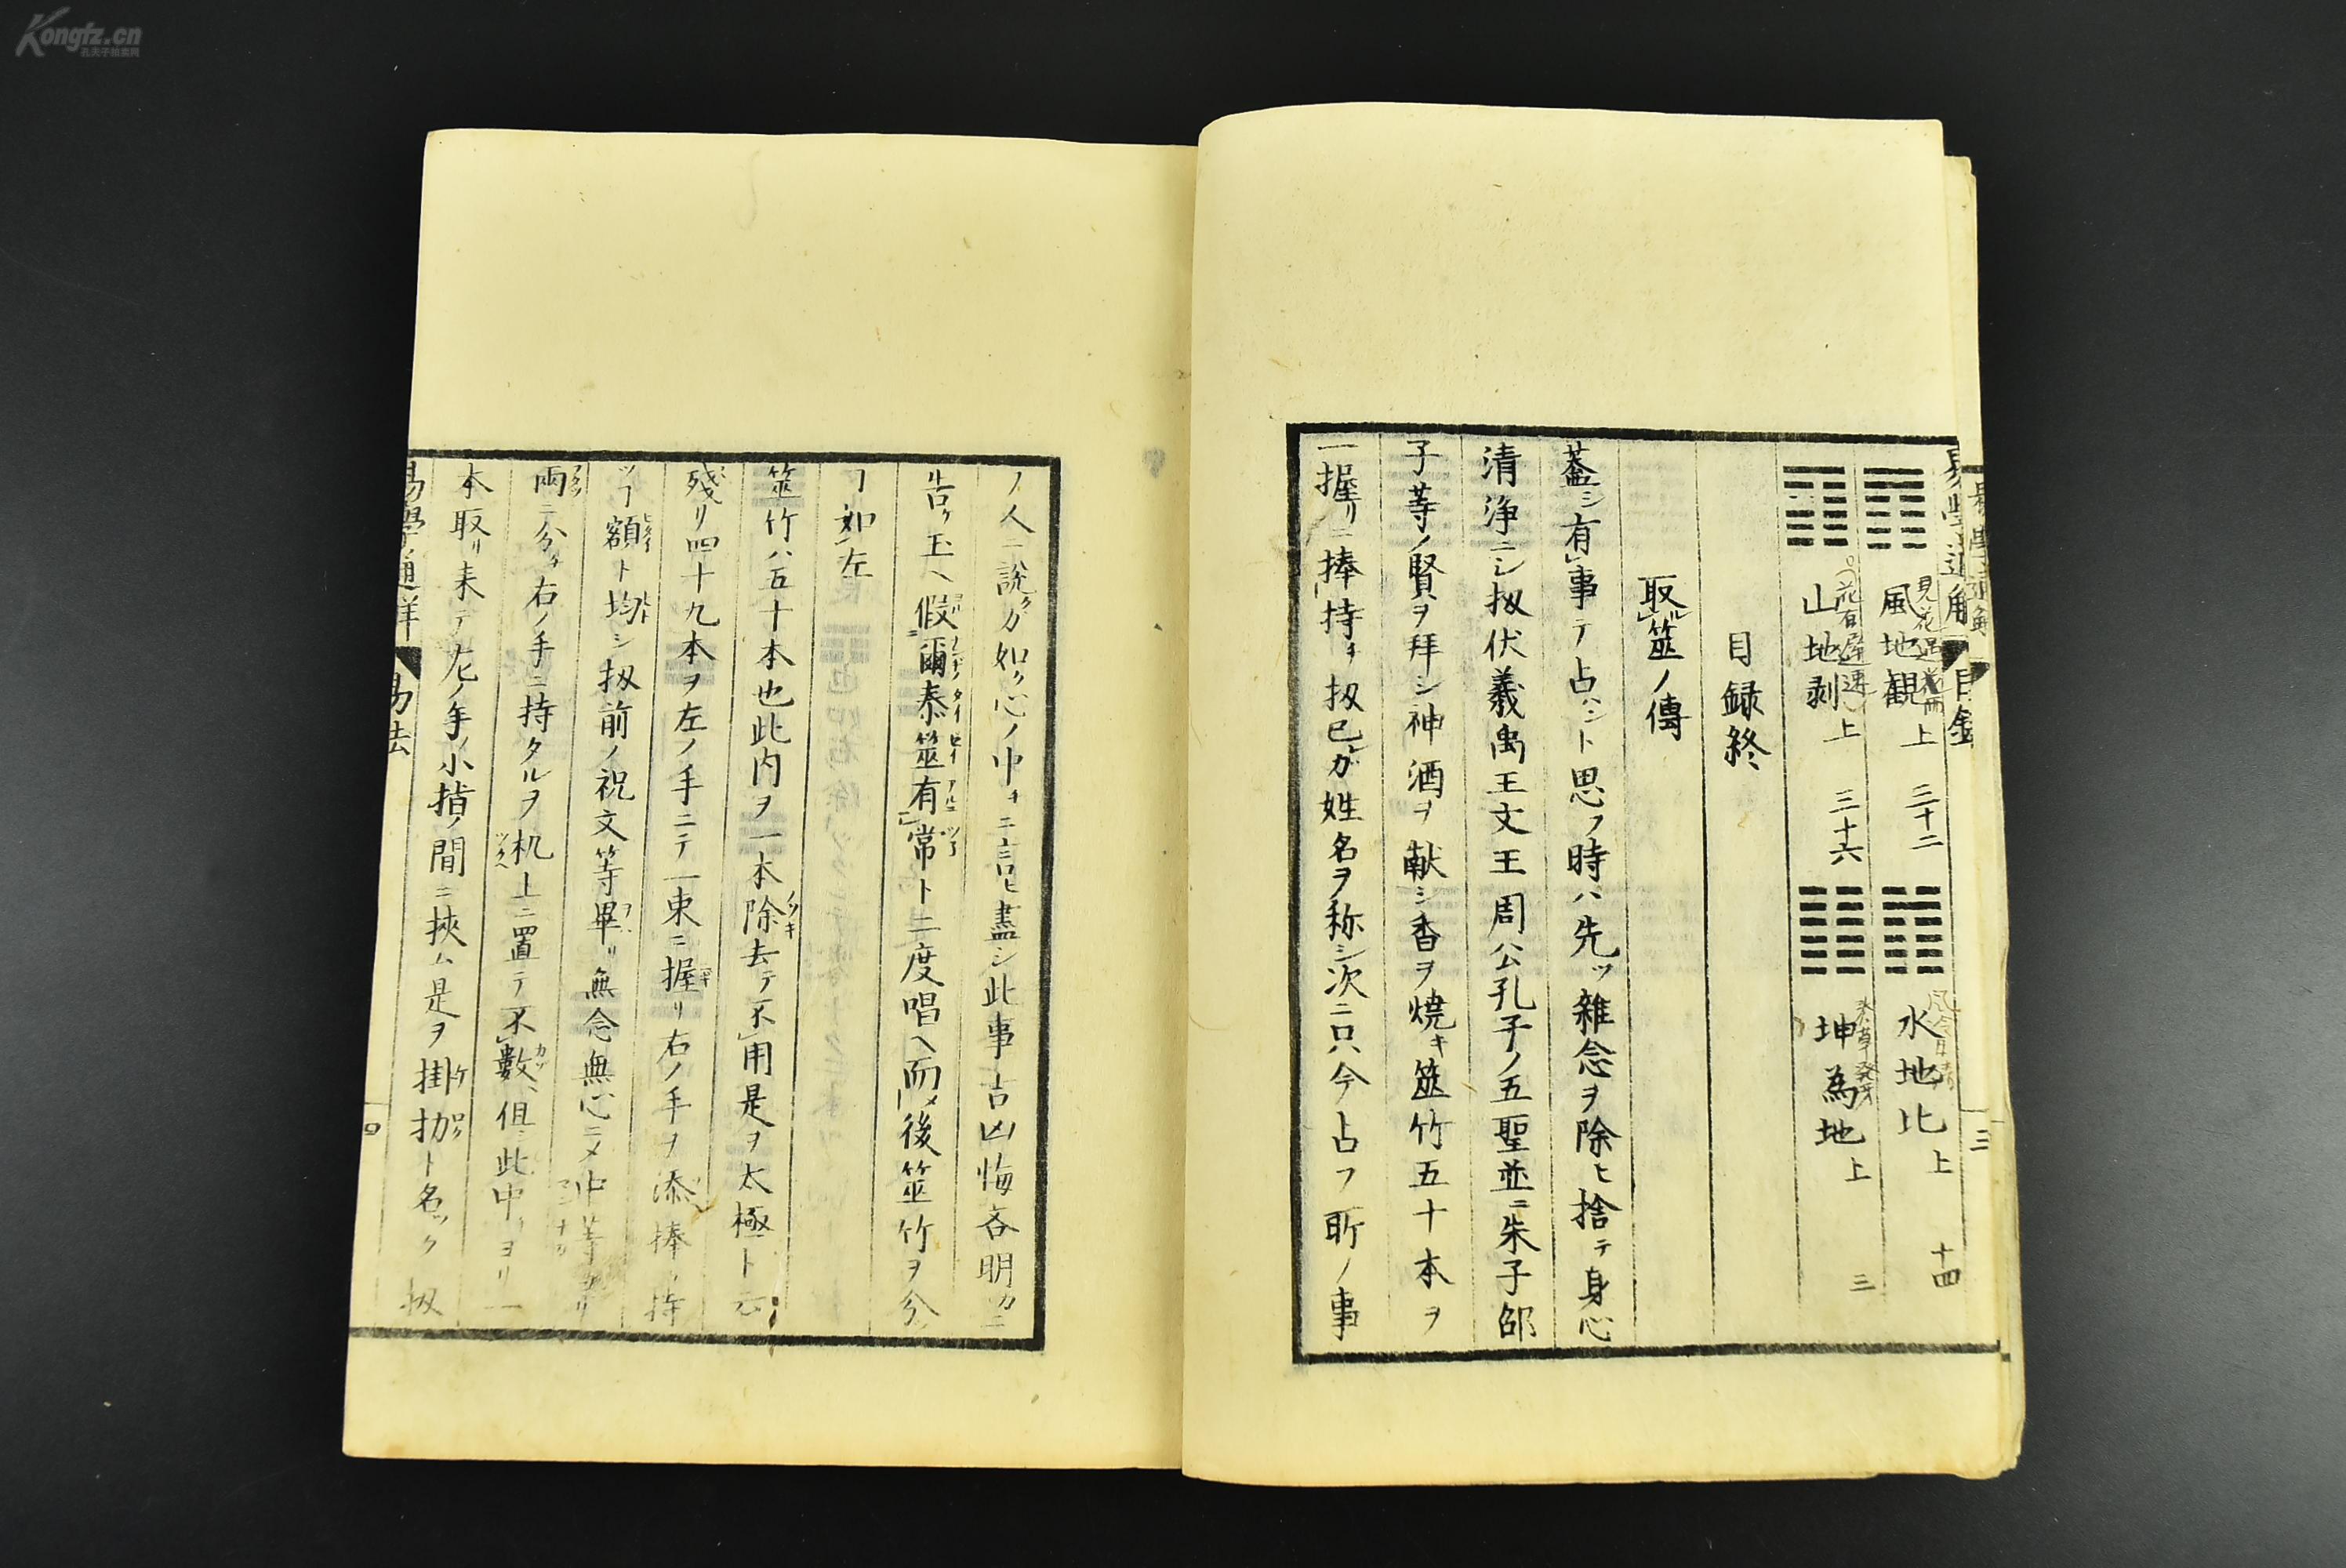 Kongfz.cn
孔夫子拍卖网
風地観 上 三十二
水地比 上 十四
山地剥 上 三十六
坤為地 上 三
目録終
取ル筮ノ傳
蓋シ有事テ占ハント思フ時ハ先ツ雑念ヲ除ヒ捨テ身心
清浄ニシ扨伏義禹王文王周公孔子ノ五聖並ニ朱子邵
子等ノ賢ヲ拜シ神酒ヲ献シ香ヲ焼キ筮竹五十本ヲ
一握リニ捧持チ扨已ガ姓名ヲ称シ次ニ只今占フ所ノ事
ノ人ニ説クガ如ク心ノ中チニ言ヒ盡シ此事吉凶悔吝明カニ
告ケ玉ヘ假爾泰筮有常ト二度唱ヘ而〆後筮竹ヲ分
ヿ如左
筮竹ハ五十本也此内ヲ一本除去テ不用是ヲ太極ト云
残リ四十九本ヲ左ノ手ニテ一束ニ握リ右ノ手ヲ添捧ケ持
ツヿ額ト均シ扨前ノ祝文等畢リ無念無心ニ〆中等ヨリ
兩ニ分ケ右ノ手ニ持タルヲ机上ニ置テ不數但此中ヨリ一
本取リ来テ左ノ手ノ小指ノ間ニ挾ム是ヲ掛扐ト名ツク扨
易學通祥 易法
四